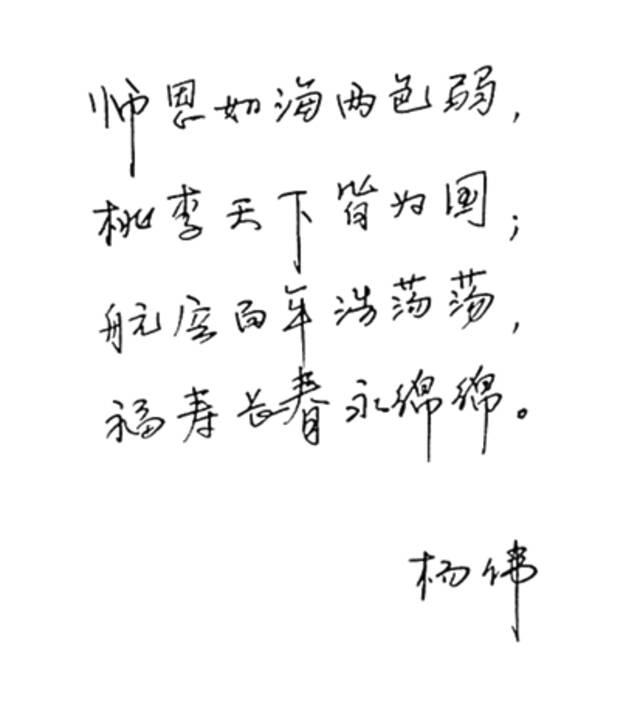 师恩如海两色弱,
桃李天下皆为国;
航空百年浩荡荡,
福寿长春永绵绵。
杨伟